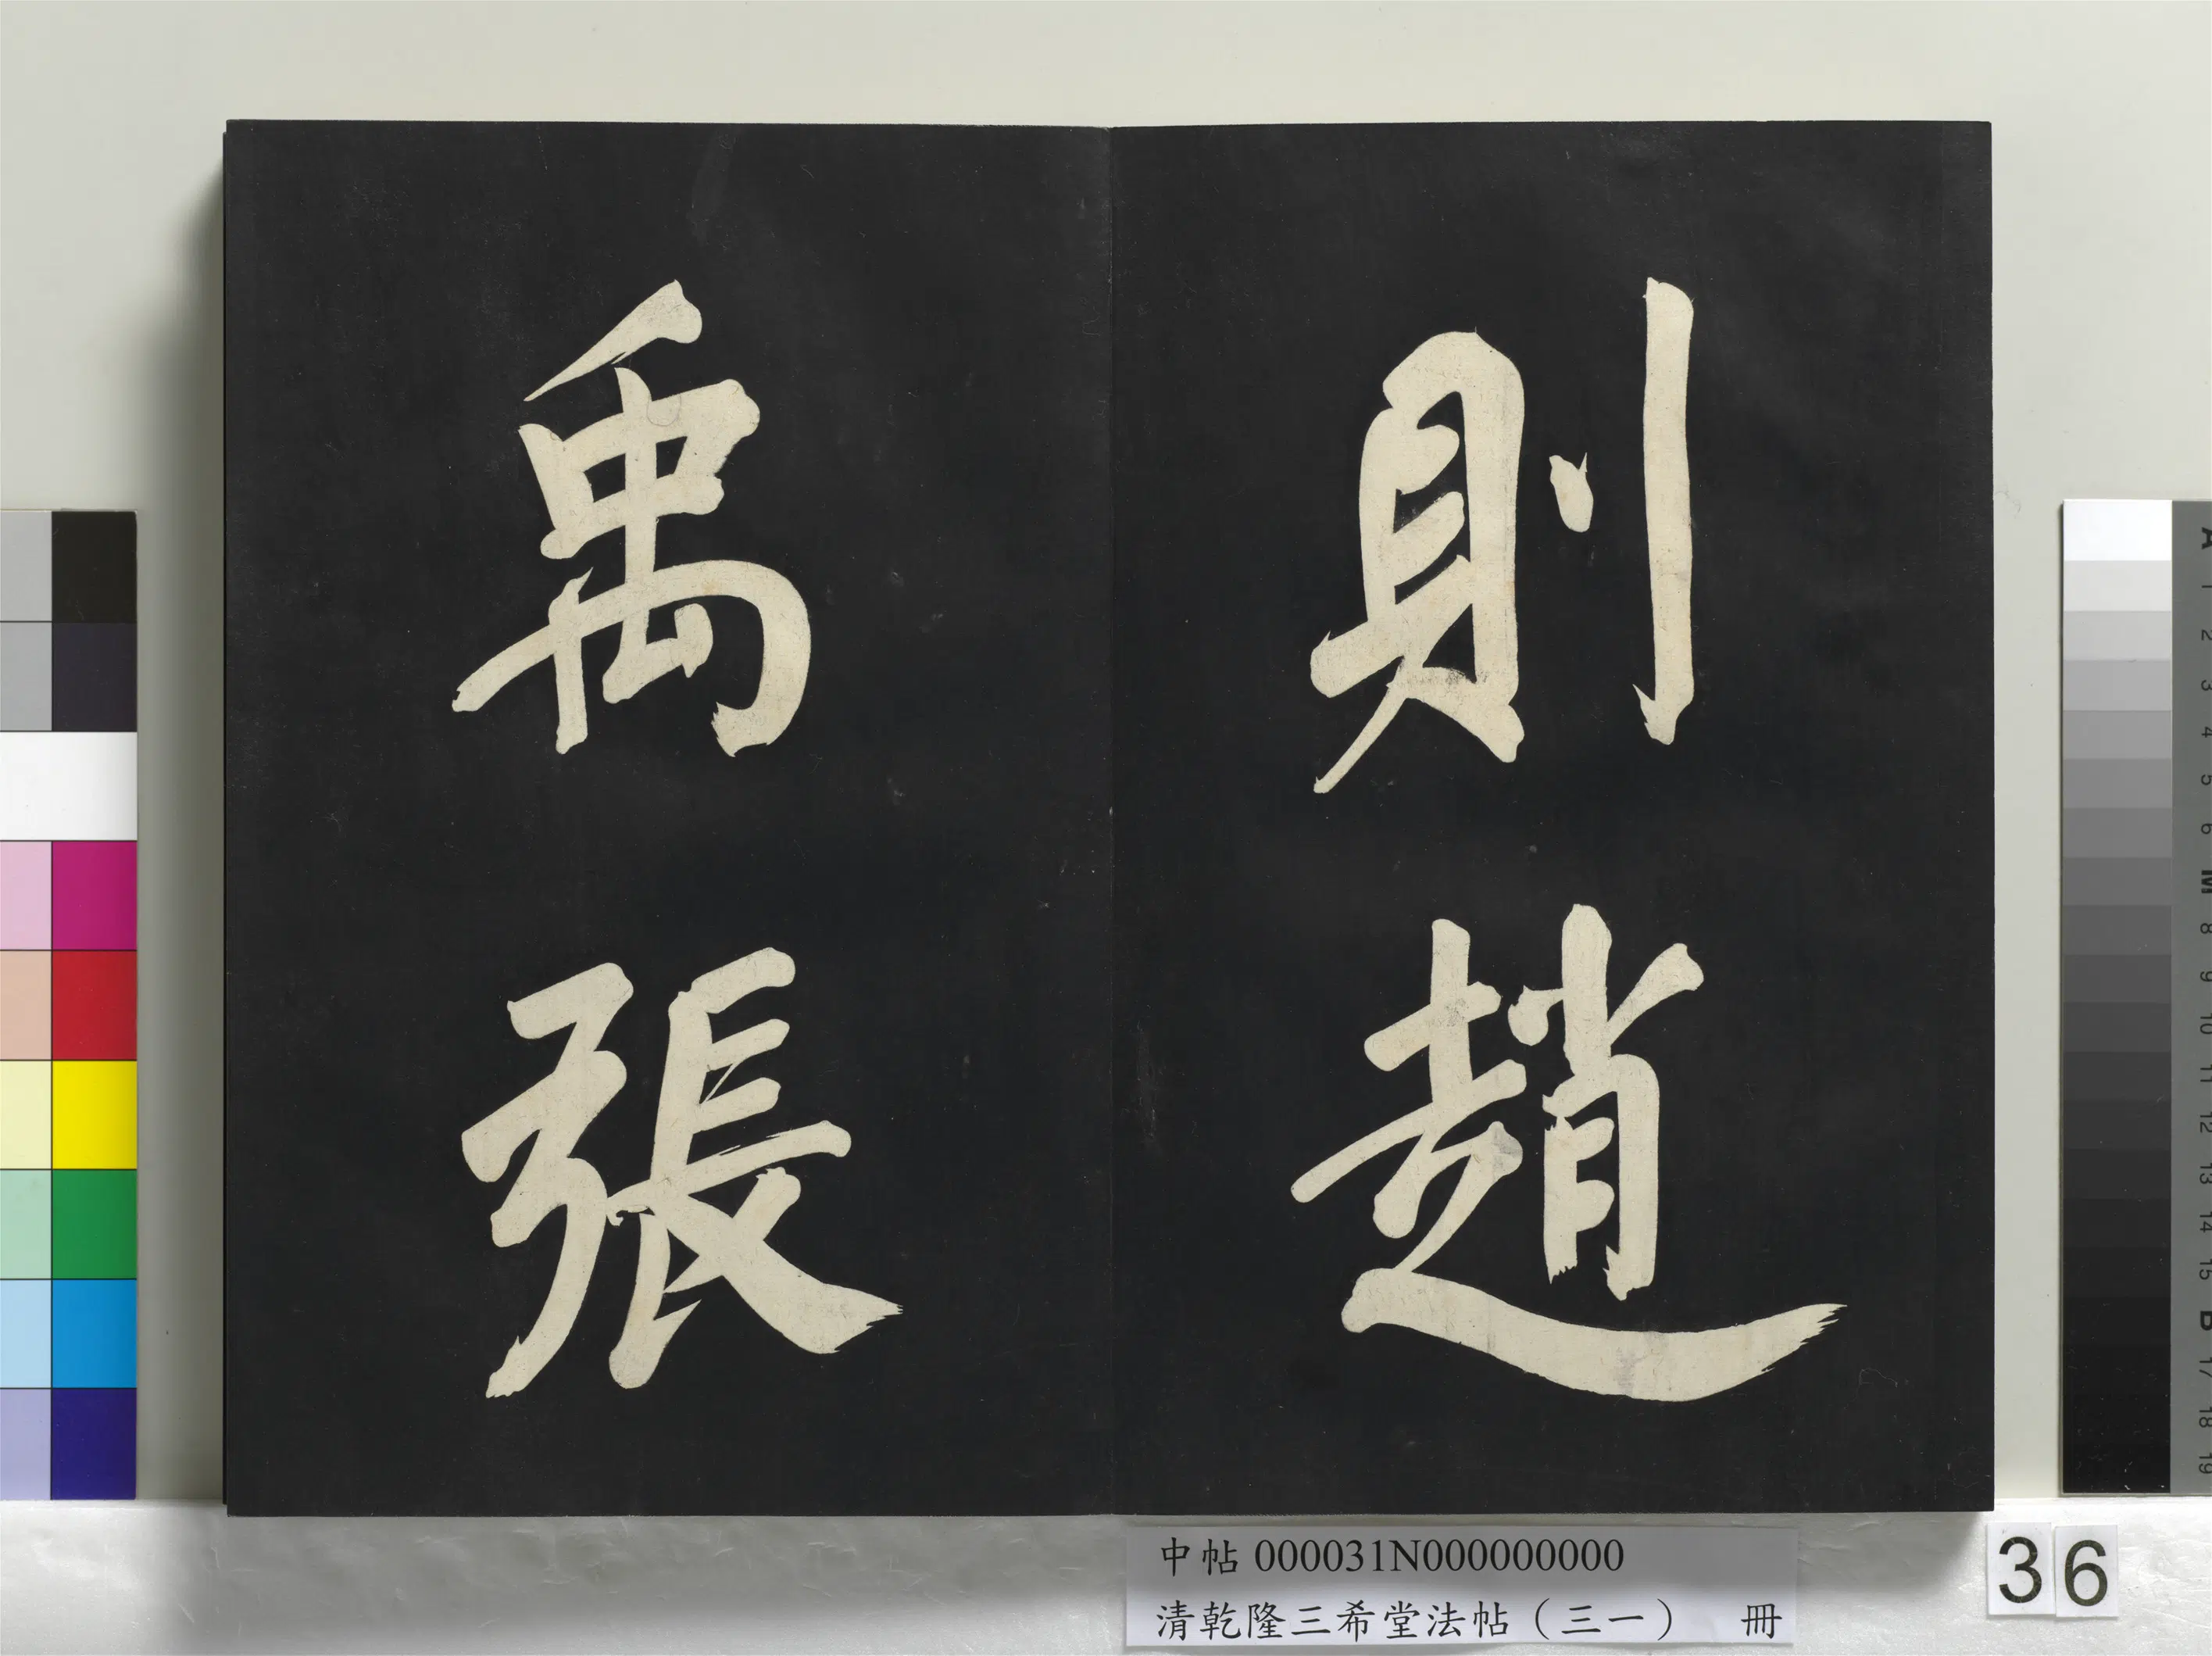 則趙
禹張
中帖 000031N000000000
清乾隆三希堂法帖（三一） 冊
36
A
1
2
3
4
5
6
M
8
9
10
11
12
13
14
15
B
17
18
19